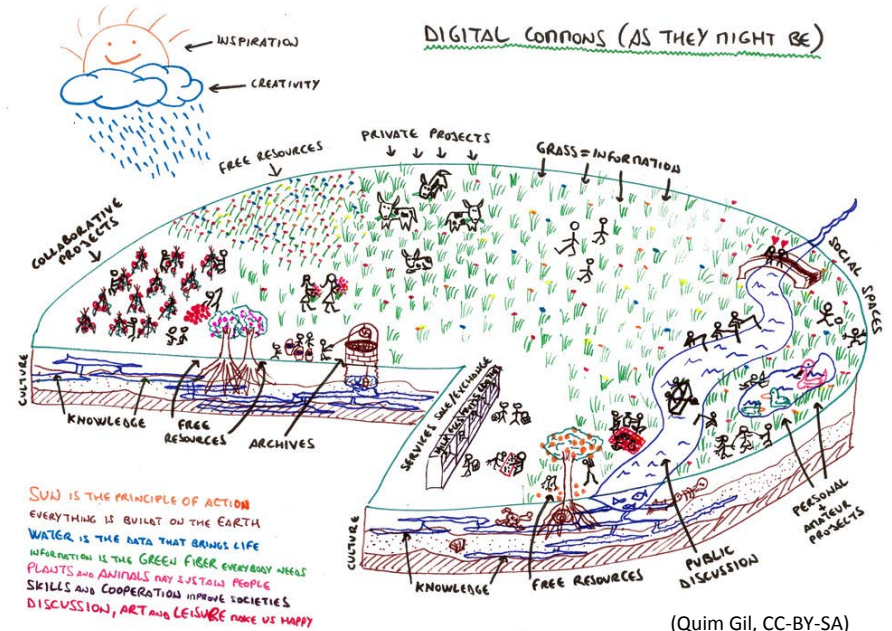 DIGITAL COMMONS (AS THEY MIGHT BE)
INSPIRATION
CREATIVITY
FREE RESOURCES
PRIVATE PROJECTS
GRASS = INFORMATION
COLLABORATIVE
PROJECTS
SOCIAL SPACES
CULTURE
KNOWLEDGE
FREE
RESOURCES
ARCHIVES
SERVICES SALE/EXCHANGE
CULTURE
KNOWLEDGE
FREE RESOURCES
PUBLIC
DISCUSSION
PERSONAL
+
AMATEUR
PROJECTS
SUN IS THE PRINCIPLE OF ACTION
EVERYTHING IS BUILDT ON THE EARTH
WATER IS THE DATA THAT BRINGS LIFE
INFORMATION IS THE GREEN FIBER EVERYBODY NEEDS
PLANTS AND ANIMALS MAY SUSTAIN PEOPLE
SKILLS AND COOPERATION IMPROVE SOCIETIES
DISCUSSION, ART AND LEISURE MAKE US HAPPY
(Quim Gil, CC-BY-SA)